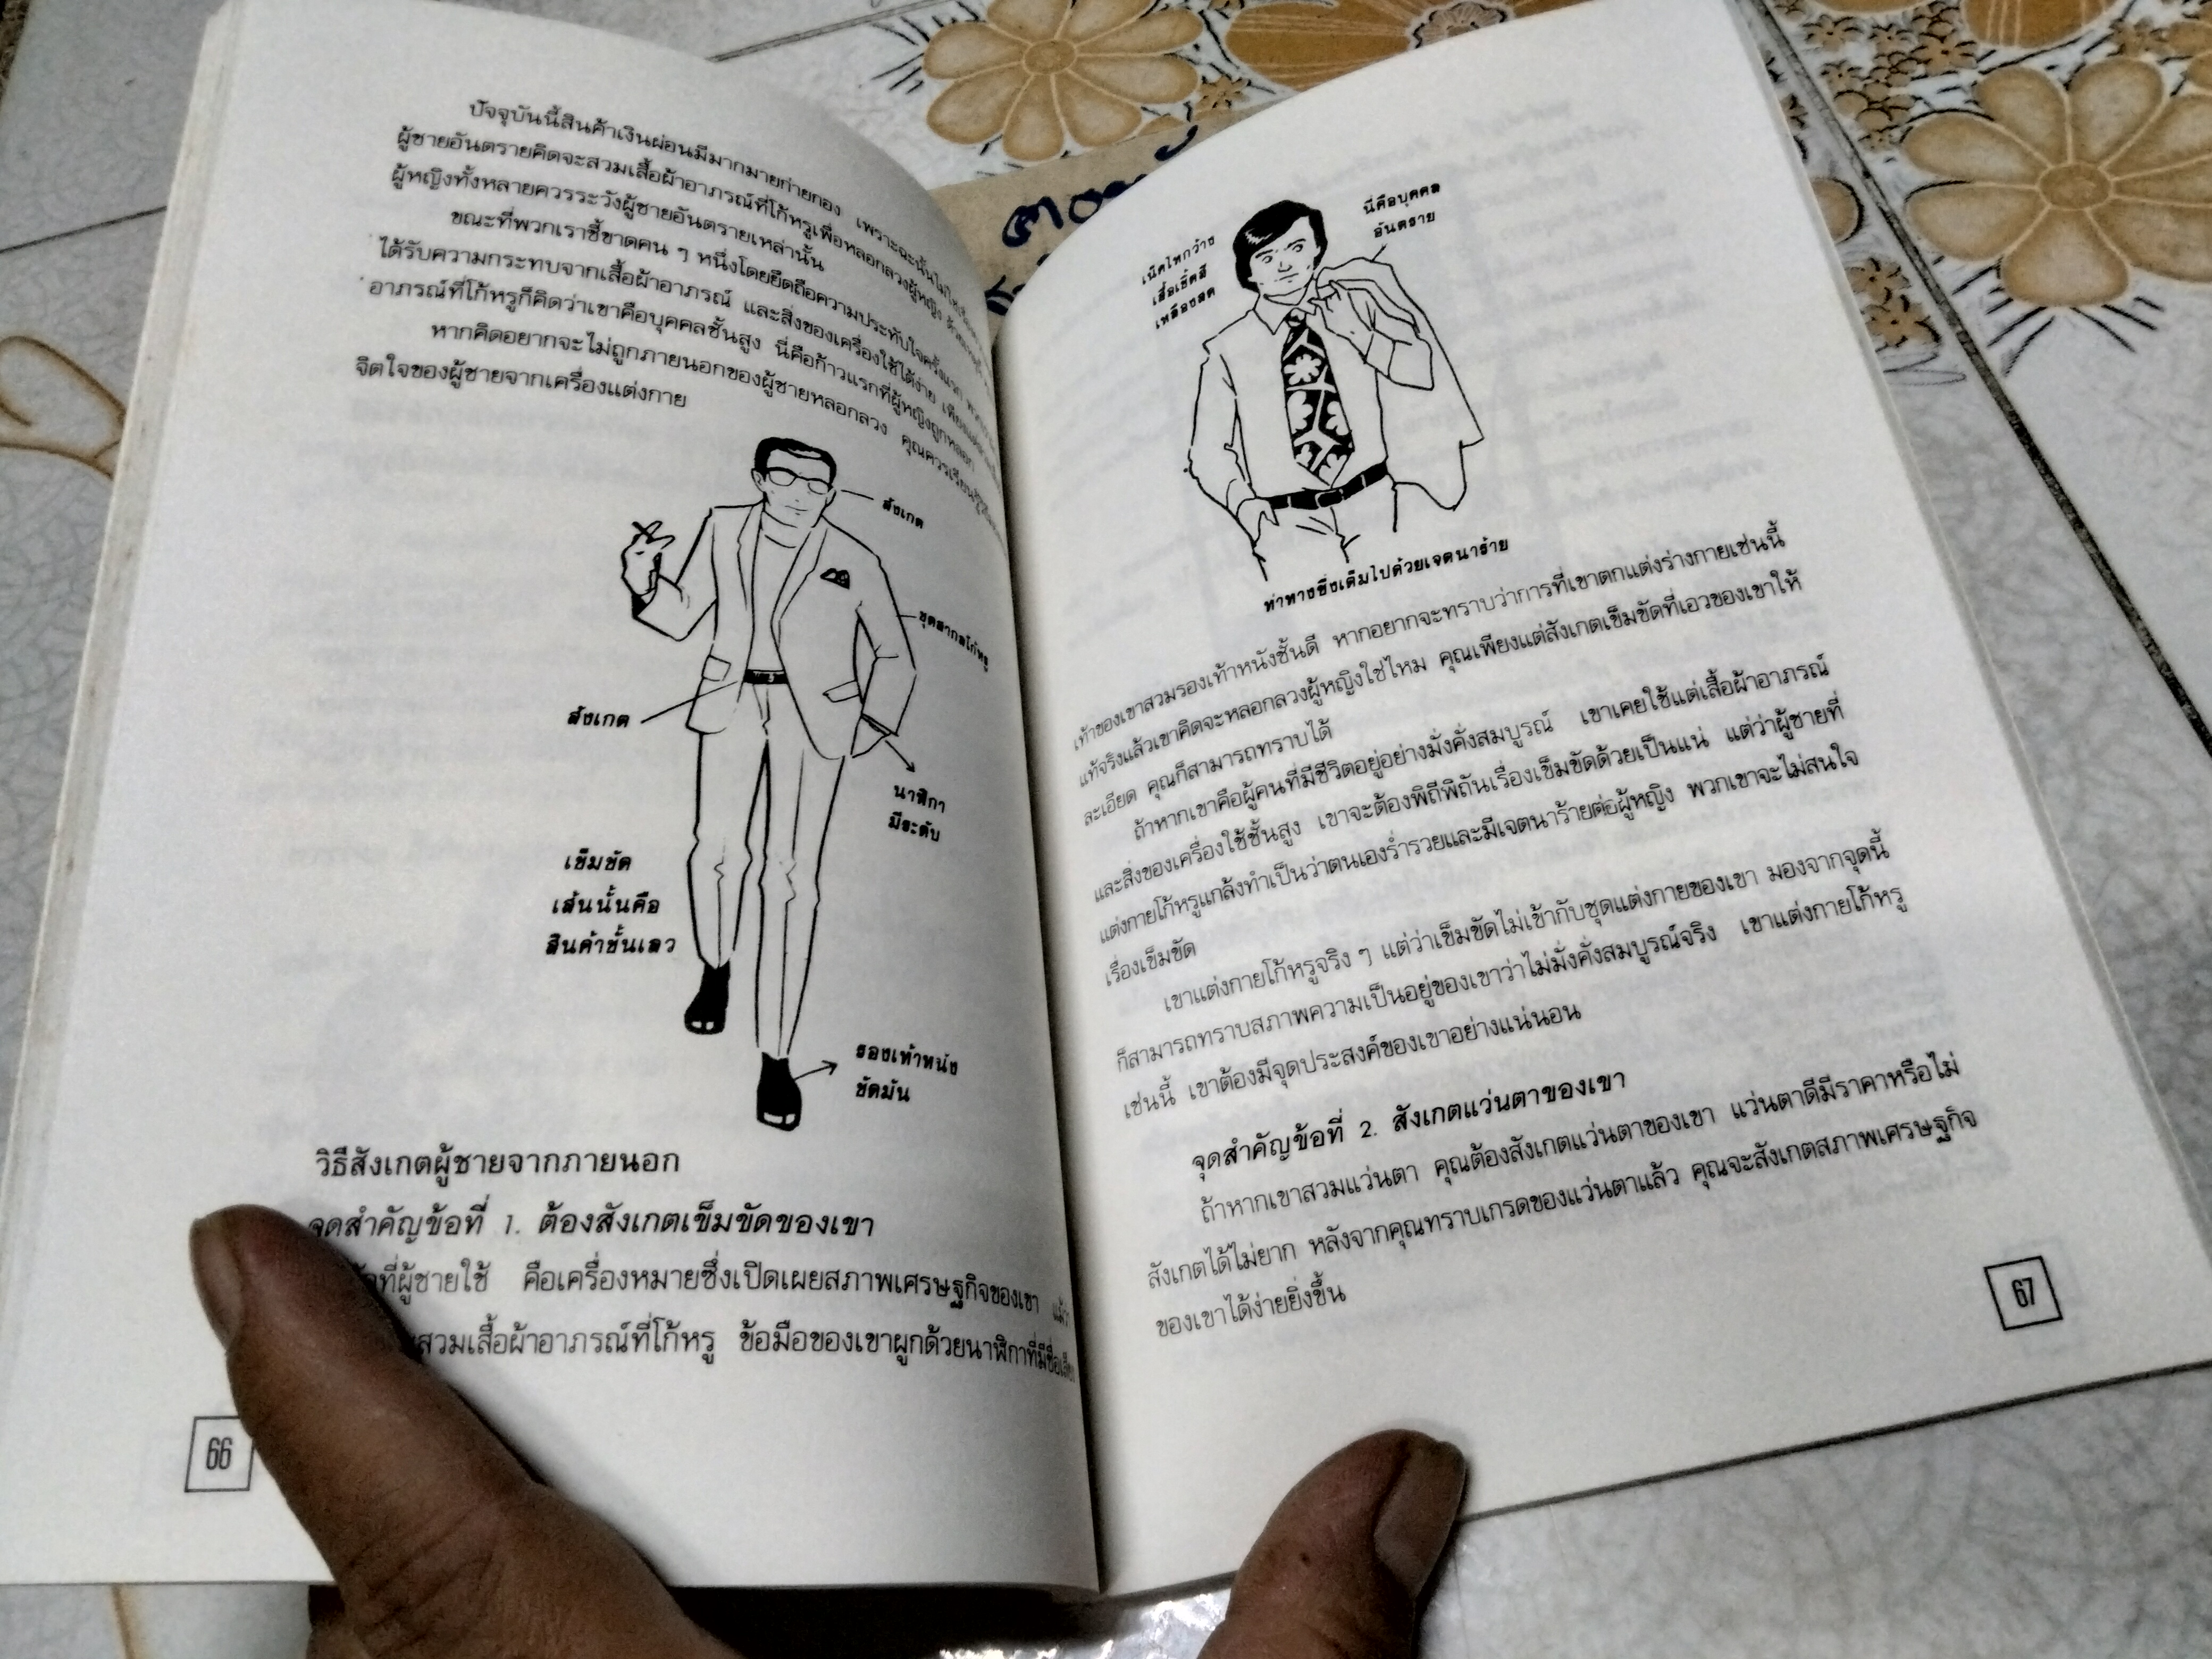 ปัจจุบันนี้สินค้าเงินผ่อนมีมากมายก่ายกอง เพราะฉะนั้นไม่ใช่เรื่อง
ผู้ชายอันตรายคิดจะสวมเสื้อผ้าอาภรณ์ที่โก้หรูเพื่อหลอกลวงผู้หญิง
ผู้หญิงทั้งหลายควรระวังผู้ชายอันตรายเหล่านั้น
ขณะที่พวกเราชี้ขาดคน ๆ หนึ่งโดยยึดถือความประทับใจครั้งแรก
ได้รับความกระทบจากเสื้อผ้าอาภรณ์ และสิ่งของเครื่องใช้ได้ง่าย
อาภรณ์ที่โก้หรูก็คิดว่าเขาคือบุคคลชั้นสูง นี่คือก้าวแรกที่ผู้หญิงถูกหลอก
หากคิดอยากจะไม่ถูกภายนอกของผู้ชายหลอกลวง คุณควรเรียนรู้
จิตใจของผู้ชายจากเครื่องแต่งกาย
สังเกต
ชุดสากลโก้หรู
สังเกต
นาฬิกา
มีระดับ
เข็มขัด
เส้นนั้นคือ
สินค้าชั้นเลว
รองเท้าหนัง
ขัดมัน
วิธีสังเกตผู้ชายจากภายนอก
จุดสำคัญข้อที่ 1. ต้องสังเกตเข็มขัดของเขา
ที่ผู้ชายใช้ คือเครื่องหมายซึ่งเปิดเผยสภาพเศรษฐกิจของเขา แม้ว่า
สวมเสื้อผ้าอาภรณ์ที่โก้หรู ข้อมือของเขาผูกด้วยนาฬิกาที่มีชื่อเสียง
66
นี่คือบุคคล
อันตราย
เน็คไทกว้าง
เสื้อเชิ้ตสี
เหลืองสด
ท่าทางซึ่งเต็มไปด้วยเจตนาร้าย
เท้าของเขาสวมรองเท้าหนังชั้นดี หากอยากจะทราบว่าการที่เขาตกแต่งร่างกายเช่นนี้
แท้จริงแล้วเขาคิดจะหลอกลวงผู้หญิงใช่ไหม คุณเพียงแต่สังเกตเข็มขัดที่เอวของเขาให้
ละเอียด คุณก็สามารถทราบได้
ถ้าหากเขาคือผู้คนที่มีชีวิตอยู่อย่างมั่งคั่งสมบูรณ์ เขาเคยใช้แต่เสื้อผ้าอาภรณ์
และสิ่งของเครื่องใช้ชั้นสูง เขาจะต้องพิถีพิถันเรื่องเข็มขัดด้วยเป็นแน่ แต่ว่าผู้ชายที่
แต่งกายโก้หรูแกล้งทำเป็นว่าตนเองร่ำรวยและมีเจตนาร้ายต่อผู้หญิง พวกเขาจะไม่สนใจ
เรื่องเข็มขัด
เขาแต่งกายโก้หรูจริง ๆ แต่ว่าเข็มขัดไม่เข้ากับชุดแต่งกายของเขา มองจากจุดนี้
ก็สามารถทราบสภาพความเป็นอยู่ของเขาว่าไม่มั่งคั่งสมบูรณ์จริง เขาแต่งกายโก้หรู
เช่นนี้ เขาต้องมีจุดประสงค์ของเขาอย่างแน่นอน
จุดสำคัญข้อที่ 2. สังเกตแว่นตาของเขา
ถ้าหากเขาสวมแว่นตา คุณต้องสังเกตแว่นตาของเขา แว่นตาดีมีราคาหรือไม่
สังเกตได้ไม่ยาก หลังจากคุณทราบเกรดของแว่นตาแล้ว คุณจะสังเกตสภาพเศรษฐกิจ
ของเขาได้ง่ายยิ่งขึ้น
67